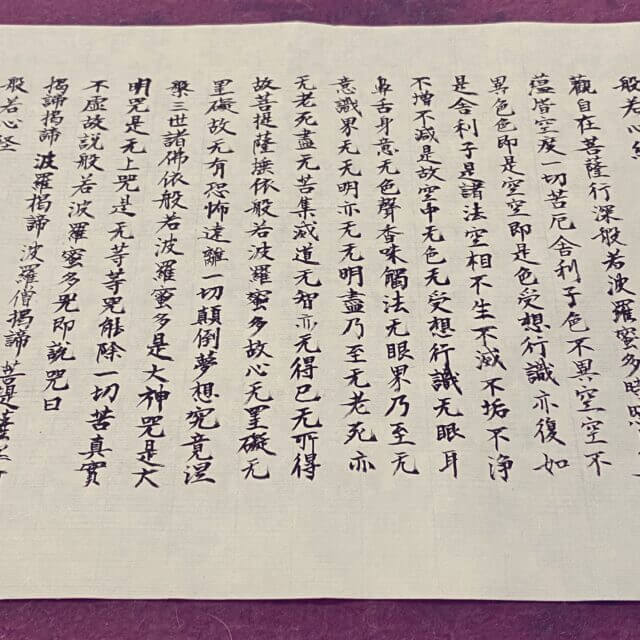 般若心經
觀自在菩薩行深般若波羅蜜多時照
蘊皆空度一切苦厄舍利子色不異空空不
異色色即是空空即是色受想行識亦復如
是舍利子是諸法空相不生不滅不垢不淨
不增不減是故空中无色无受想行識无眼耳
鼻舌身意无色聲香味觸法无眼界乃至无
意識界无无明亦无无明盡乃至无老死亦
无老死盡无苦集滅道无智亦无得已无所得
故菩提薩埵依般若波羅蜜多故心无罣礙无
罣礙故无有恐怖遠離一切顛倒夢想究竟涅
槃三世諸佛依般若波羅蜜多是大神咒是大
明咒是无上咒是无等等咒能除一切苦真實
不虛故說般若波羅蜜多咒即說咒曰
揭諦揭諦 波羅揭諦 波羅僧揭諦 菩提薩婆訶
般若心經